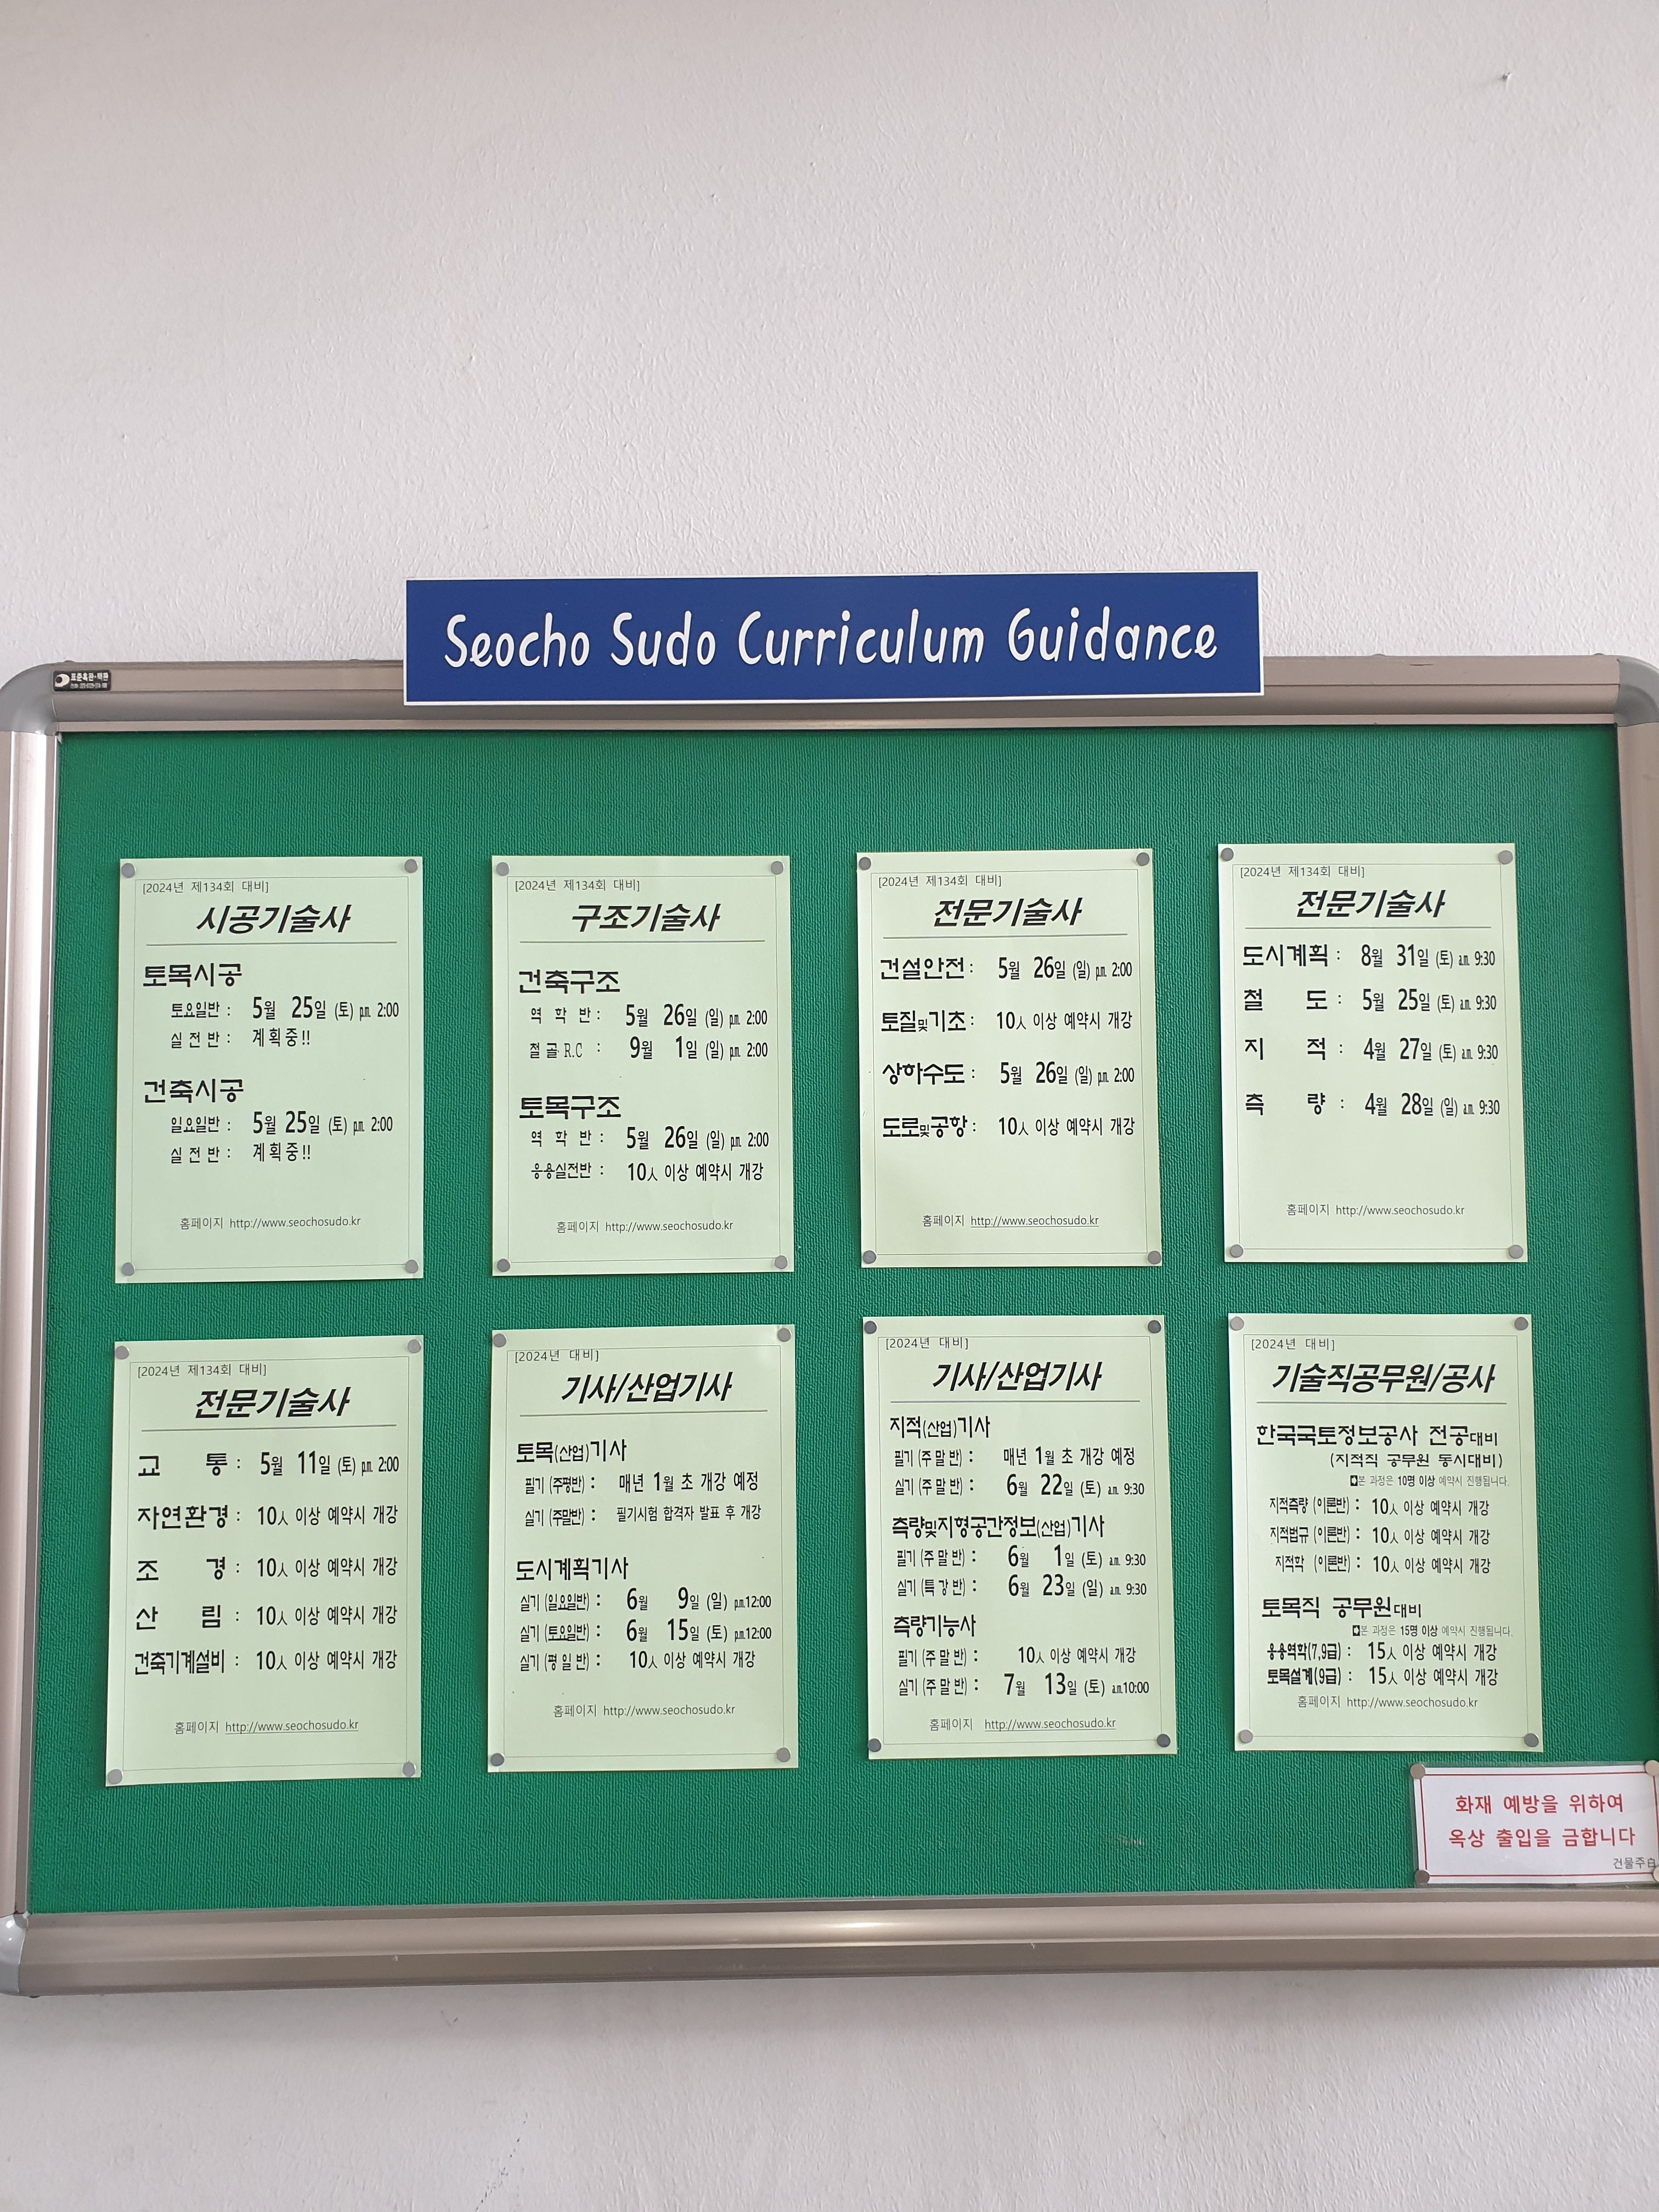 Seocho Sudo Curriculum Guidance
표준흑판·칠판
[2024년 제134회 대비]
시공기술사
토목시공
토요일반 : 5월 25일 (토) p.m. 2:00
실 전 반 : 계획중!!
건축시공
일요일반 : 5월 25일 (토) p.m. 2:00
실 전 반 : 계획중!!
홈페이지 http://www.seochosudo.kr
[2024년 제134회 대비]
구조기술사
건축구조
역 학 반 : 5월 26일 (일) p.m. 2:00
철 골 R.C : 9월 1일 (일) p.m. 2:00
토목구조
역 학 반 : 5월 26일 (일) p.m. 2:00
응용실전반 : 10人 이상 예약시 개강
홈페이지 http://www.seochosudo.kr
[2024년 제134회 대비]
전문기술사
건설안전 : 5월 26일 (일) p.m. 2:00
토질및기초 : 10人 이상 예약시 개강
상하수도 : 5월 26일 (일) p.m. 2:00
도로및공항 : 10人 이상 예약시 개강
홈페이지 http://www.seochosudo.kr
[2024년 제134회 대비]
전문기술사
도시계획 : 8월 31일 (토) a.m. 9:30
철 도 : 5월 25일 (토) a.m. 9:30
지 적 : 4월 27일 (토) a.m. 9:30
측 량 : 4월 28일 (일) a.m. 9:30
홈페이지 http://www.seochosudo.kr
[2024년 제134회 대비]
전문기술사
교 통 : 5월 11일 (토) p.m. 2:00
자연환경 : 10人 이상 예약시 개강
조 경 : 10人 이상 예약시 개강
산 림 : 10人 이상 예약시 개강
건축기계설비 : 10人 이상 예약시 개강
홈페이지 http://www.seochosudo.kr
[2024년 대비]
기사/산업기사
토목(산업)기사
필기 (주평반) : 매년 1월 초 개강 예정
실기 (주말반) : 필기시험 합격자 발표 후 개강
도시계획기사
실기 (일요일반) : 6월 9일 (일) p.m.12:00
실기 (토요일반) : 6월 15일 (토) p.m.12:00
실기 (평 일 반) : 10人 이상 예약시 개강
홈페이지 http://www.seochosudo.kr
[2024년 대비]
기사/산업기사
지적(산업)기사
필기 (주 말 반) : 매년 1월 초 개강 예정
실기 (주 말 반) : 6월 22일 (토) a.m. 9:30
측량및지형공간정보(산업)기사
필기 (주 말 반) : 6월 1일 (토) a.m. 9:30
실기 (특 강 반) : 6월 23일 (일) a.m. 9:30
측량기능사
필기 (주 말 반) : 10人 이상 예약시 개강
실기 (주 말 반) : 7월 13일 (토) a.m.10:00
홈페이지 http://www.seochosudo.kr
[2024년 대비]
기술직공무원/공사
한국국토정보공사 전공대비
(지적직 공무원 동시대비)
본 과정은 10명 이상 예약시 진행됩니다.
지적측량 (이론반) : 10人 이상 예약시 개강
지적법규 (이론반) : 10人 이상 예약시 개강
지적학 (이론반) : 10人 이상 예약시 개강
토목직 공무원대비
본 과정은 15명 이상 예약시 진행됩니다.
응용역학(7,9급) : 15人 이상 예약시 개강
토목설계(9급) : 15人 이상 예약시 개강
홈페이지 http://www.seochosudo.kr
화재 예방을 위하여
옥상 출입을 금합니다
건물주白